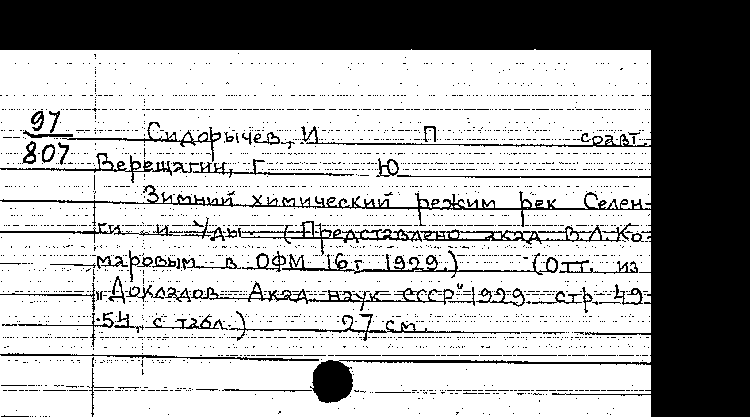 97
807
Сидорычев, И П соавт.
Верещагин, Г. Ю
Зимний химический режим рек Селен-
ги и Уды. (Представлено акад. В.Л.Ко-
маровым в ОФМ 16 г. 1929.) (Отт. из
"Докладов Акад. наук СССР" 1929. стр. 49-
-54, с табл.) 27 см.